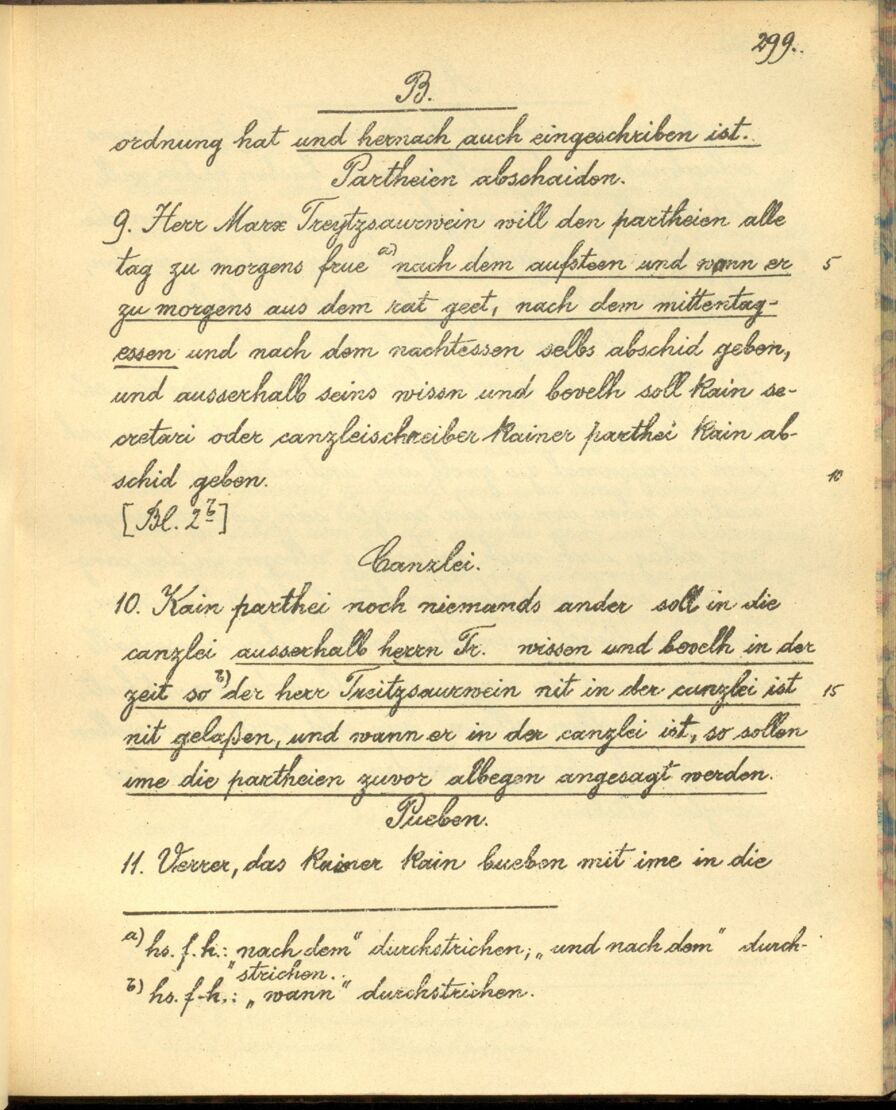 299.
B.
ordnung hat und hernach auch eingeschriben ist.
Partheien abschaiden.
9. Herr Marx Treytzsaurwein will den partheien alle
tag zu morgens frue a) nach dem aufsteen und wann er 5
zu morgens aus dem rat geet, nach dem mittentag-
essen und nach dem nachtessen selbs abschid geben,
und ausserhalb seins wissn und bevelh soll kain se-
cretari oder canzleischreiber kainer parthei kain ab-
schid geben. 10
[Bl. 2b]
Canzlei.
10. Kain parthei noch niemands ander soll in die
canzlei ausserhalb herrn Tr. wissen und bevelh in der
zeit so b) der herr Treitzsaurwein nit in der canzlei ist 15
nit gelaßen, und wann er in der canzlei ist, so sollen
ime die partheien zuvor albegen angesagt werden.
Pueben.
11. Verrer, das kainer kain bueben mit ime in die
a) hs. f. h.: „nach dem“ durchstrichen; „und nach dem“ durch-
strichen.
b) hs. f. h.: „wann“ durchstrichen.